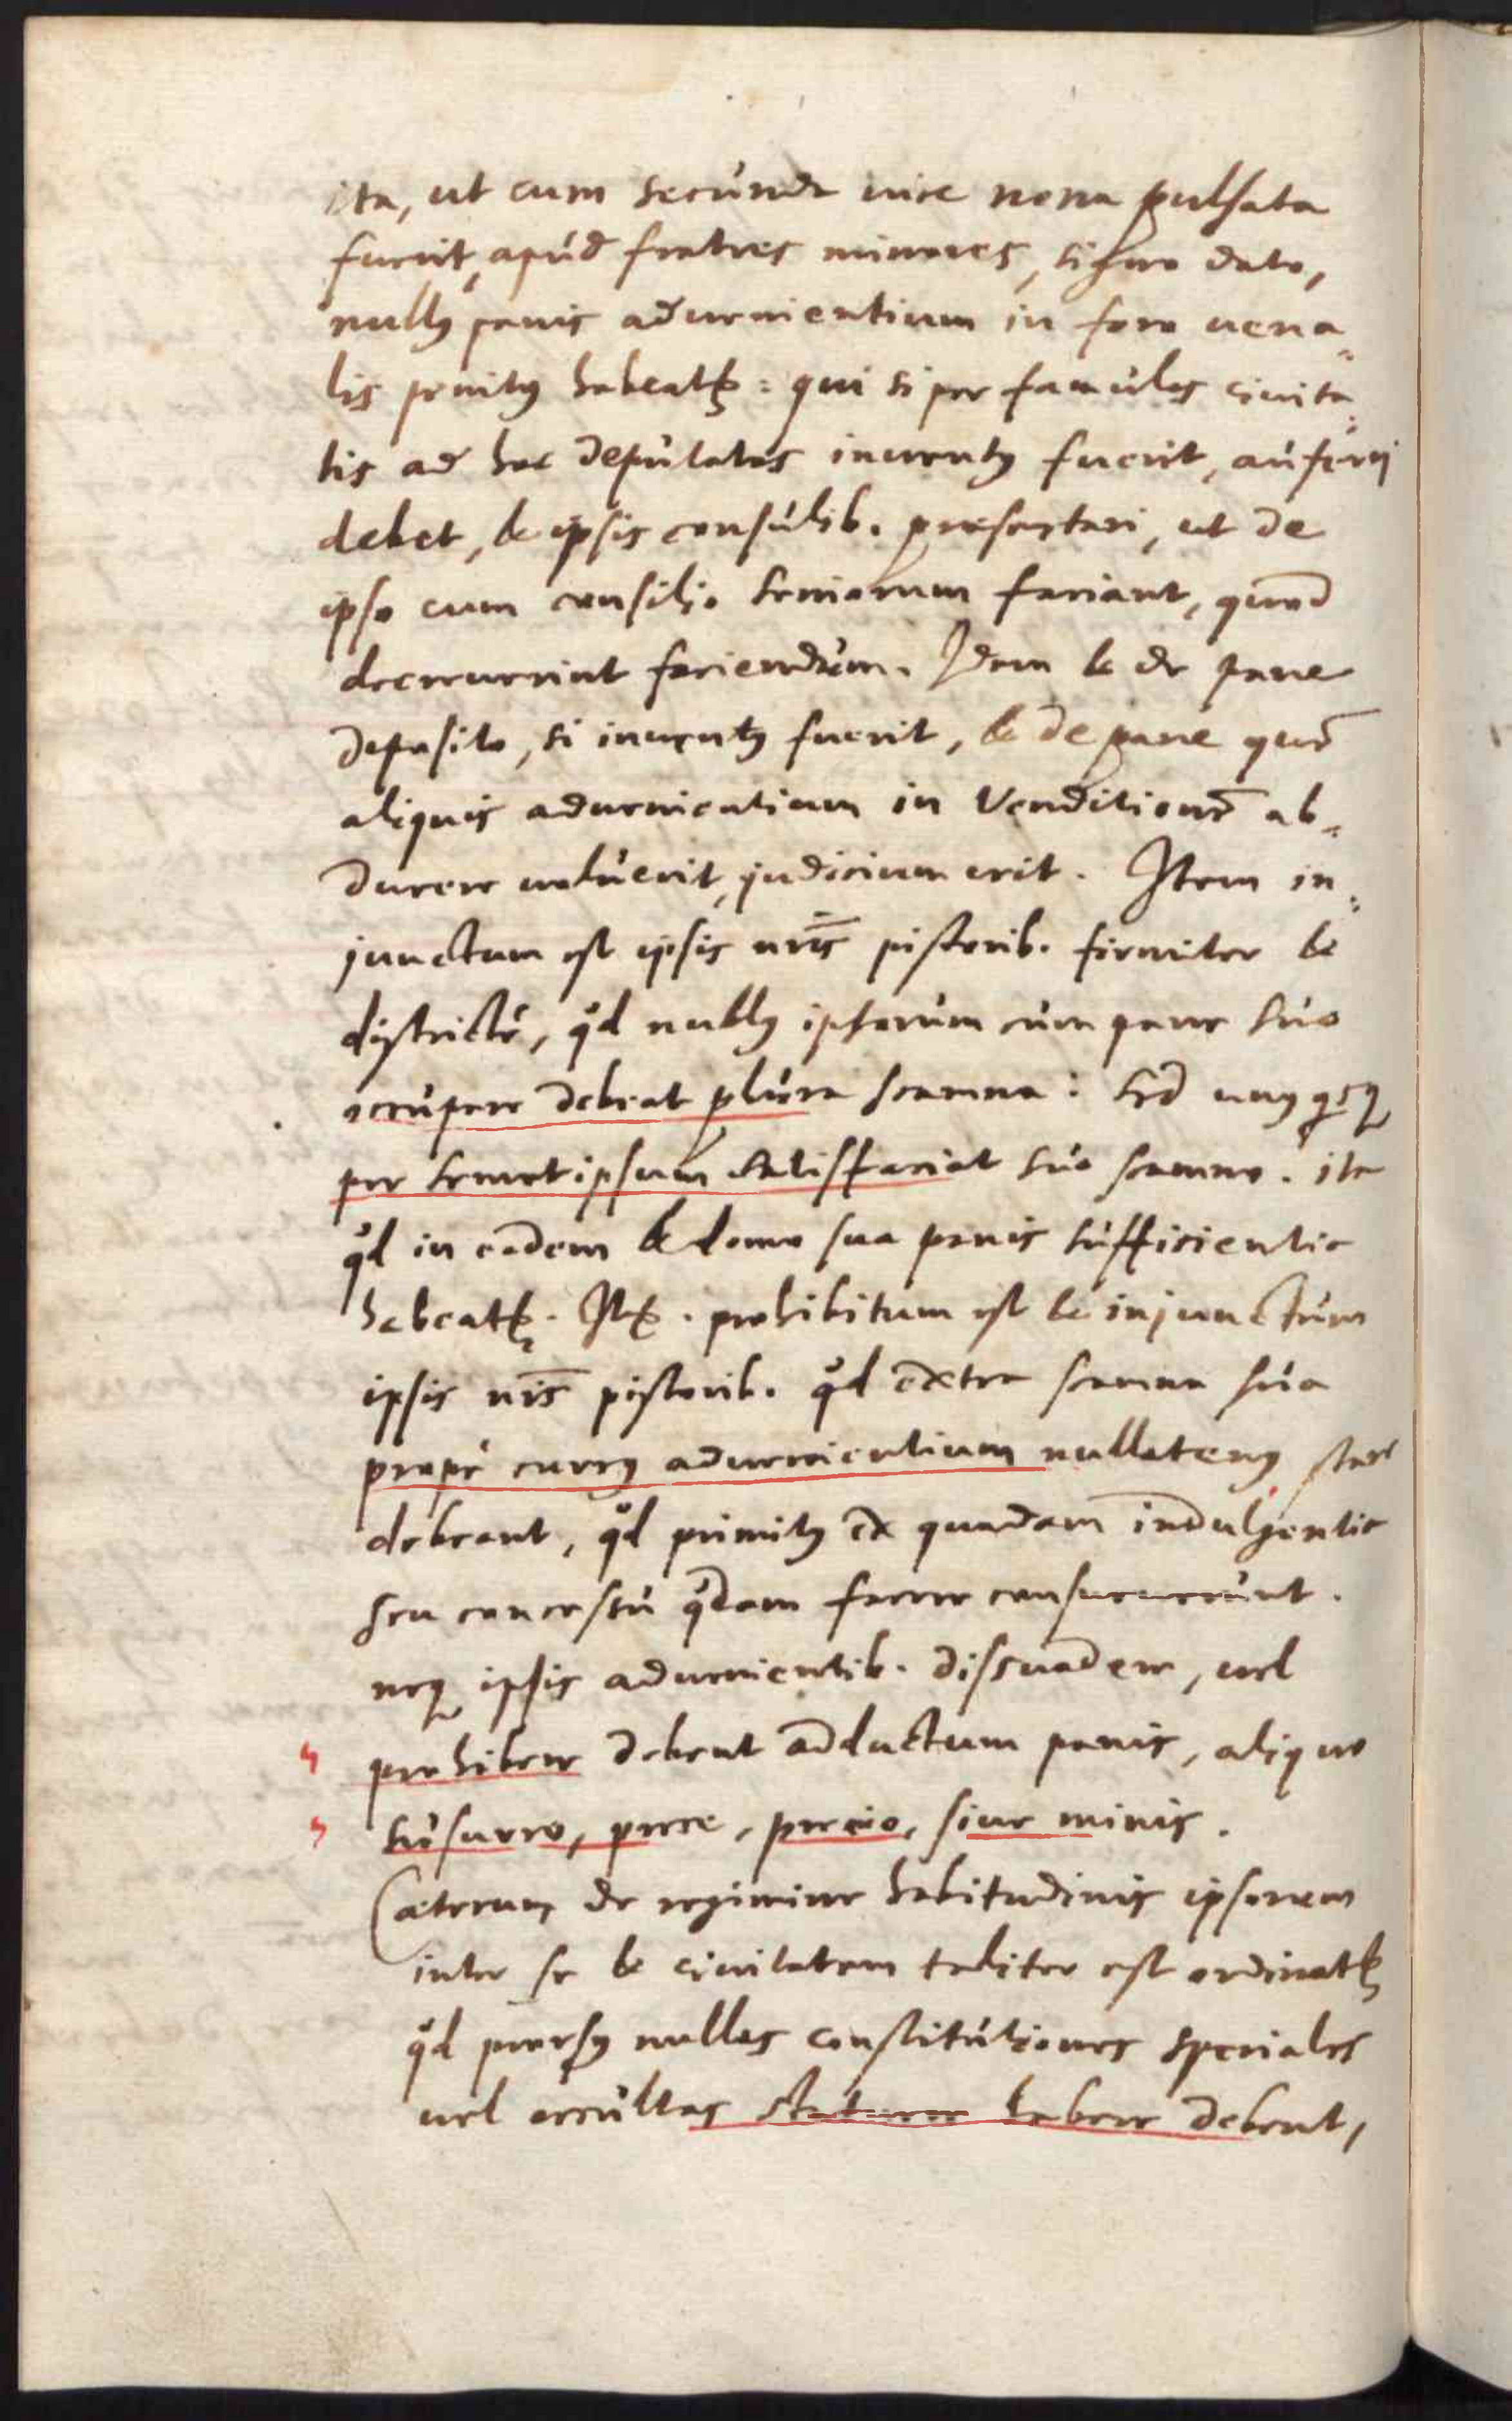 ita, ut cum secunda uice nona pulsata
fuerit, apud fratres minores, signo dato,
nullꝰ panis aduenientium in foro uena=
lis penitꝰ habeatr: qui si per famulos ciuita=
tis ad hoc deputatos inuentꝰ fuerit, auferrj
debet, & ipsis consulib. praesentari, ut de
ipso cum consilio seniorum faciant, quod
decreuerint faciendum. Idem & de pane
deposito, si inuentꝰ fuerit, & de pane quē
aliquis aduenientium in Venditionē ab=
ducere uoluerit, judicium erit. Item in=
junctum est ipsis nr̄is pistorib. firmiter &
districtè, qd nullꝰ ipsorum cum pane suo
occupare debeat plura scamna: sed unꝰ qsq
per semetipsum satisfaciat suo scamno. ita
qd in eadem & domo sua panis sufficientia
habeatr. Itē. prohibitum est & injunctum
ipsis nr̄is pistorib. qd extra scamna sua
propè currꝰ aduenientium nullatenꝰ stare
debeant, qd primitꝰ ex quadam indulgentia
seu concessu qdam facere consueuerunt.
neq ipsis aduenientib. dissuadere, uel
prohibere debent adductum panis, aliquo
susurro, prece, precio, siue minis.
Caeterum de regimine habitudinis ipsorum
inter se & ciuitatem taliter est ordinatr
qd prorsꝰ nullas constitutiones speciales
uel occultas statuere habere debent,